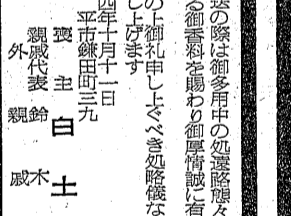 の際は御多用中の処遠路態々
る御香料を賜わり御厚情誠に有
の上御礼申し上ぐべき処略儀な
し上げます
四年十月十一日
平市鎌田町三九
喪主 白土
親戚代表 鈴木
外 親戚